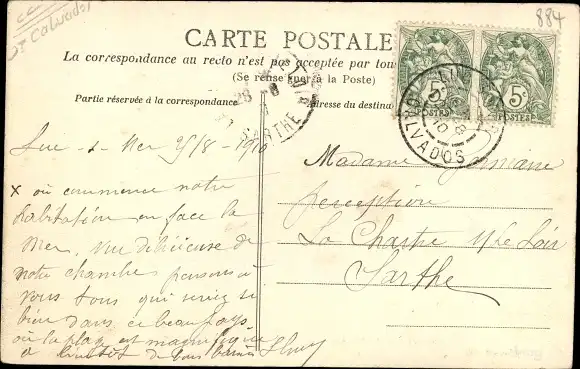 884
Calvados
CARTE POSTALE
La correspondance au recto n'est pas acceptée par tou
(Se renseigner à la Poste)
Partie réservée à la correspondance
Adresse du destina
5c 5c
POSTES POSTES
LUC-S-MER
CALVADOS
SARTHE
Luc-s-Mer 25/8-1910
x où commence notre
habitation en face la
mer, vue délicieuse de
notre chambre pensons à
vous tous qui seriez si
bien dans ce beau pays
où la plage est magnifique
Madame
perception
La Chartre s/le Loir
Sarthe